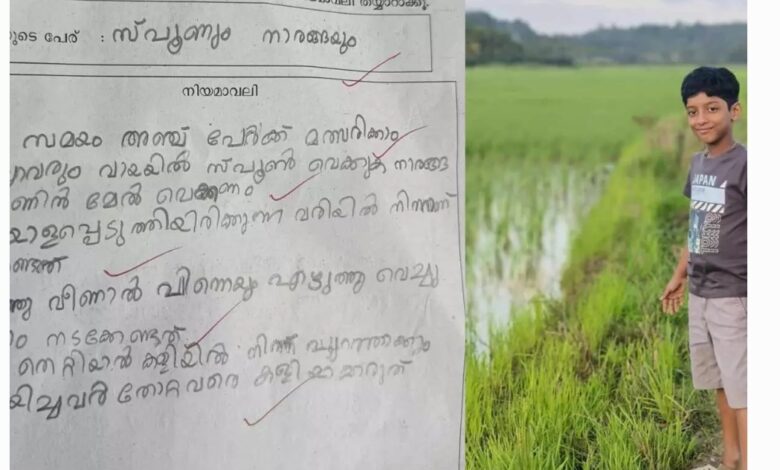 തയ്യാറാക്കൂ.
പേര് : സ്പൂണും നാരങ്ങയും
നിയമാവലി
സമയം അഞ്ച് പേർക്ക് മത്സരിക്കാം
വായയിൽ സ്പൂൺ വെക്കുക നാരങ്ങ
ണിൻ മേൽ വെക്കണം
ളപ്പെടുത്തിയിരിക്കുന്ന വരിയിൽ നിന്നാണ്
ണ്ടത്
വീണാൽ പിന്നെയും എടുത്തു വെച്ചു
നടക്കേണ്ടത്
തെറ്റിയാൽ കളിയിൽ നിന്ന് പുറത്താക്കും
യിച്ചവർ തോറ്റവരെ കളിയാക്കരുത്
JAPAN